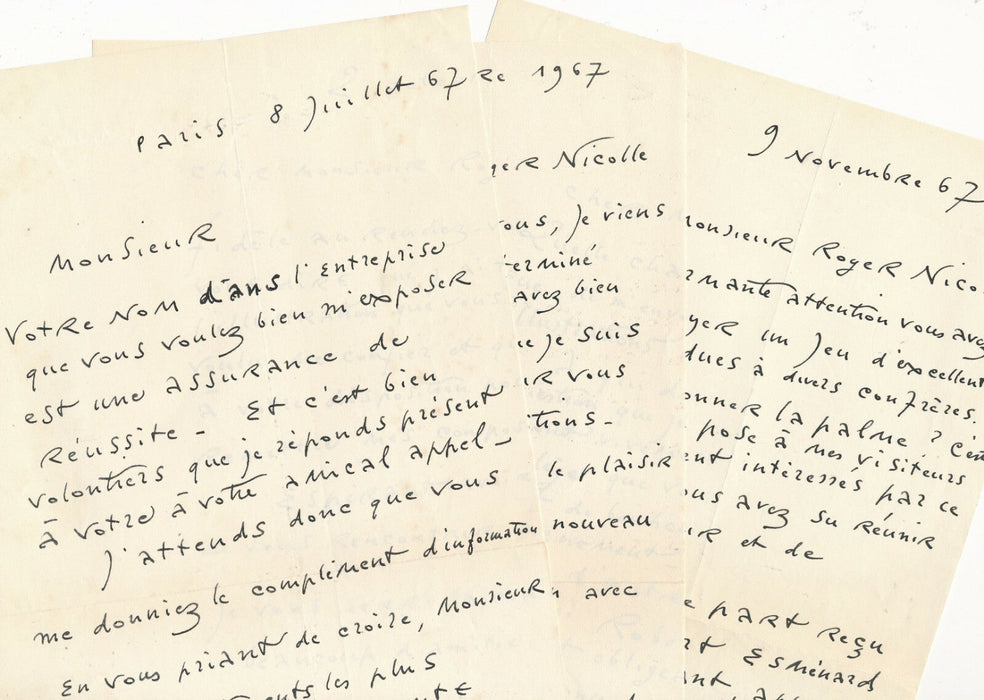 Paris 8 Juillet 67
Monsieur
Votre nom dans l'entreprise
que vous voulez bien m'exposer
est une assurance de
Réussite - Et c'est bien
volontiers que je réponds présent
à votre à votre amical appel -
J'attends donc que vous
me donniez le complément d'information
En vous priant de croire, Monsieur
ents les plus
re 1967
ger Nicolle
ous, je viens
terminé
avez bien
je suis
ir vous
itions -
le plaisir
nouveau
avec
9 Novembre 67
onsieur Roger Nico
rmante attention vous avez
yer un Jeu d'excellent
dues à divers confrères.
onner la palme ? C'est
pose à mes visiteurs
ent intéressés par ce
ous avez su réunir
ur et de
e part reçu
rt Esménard